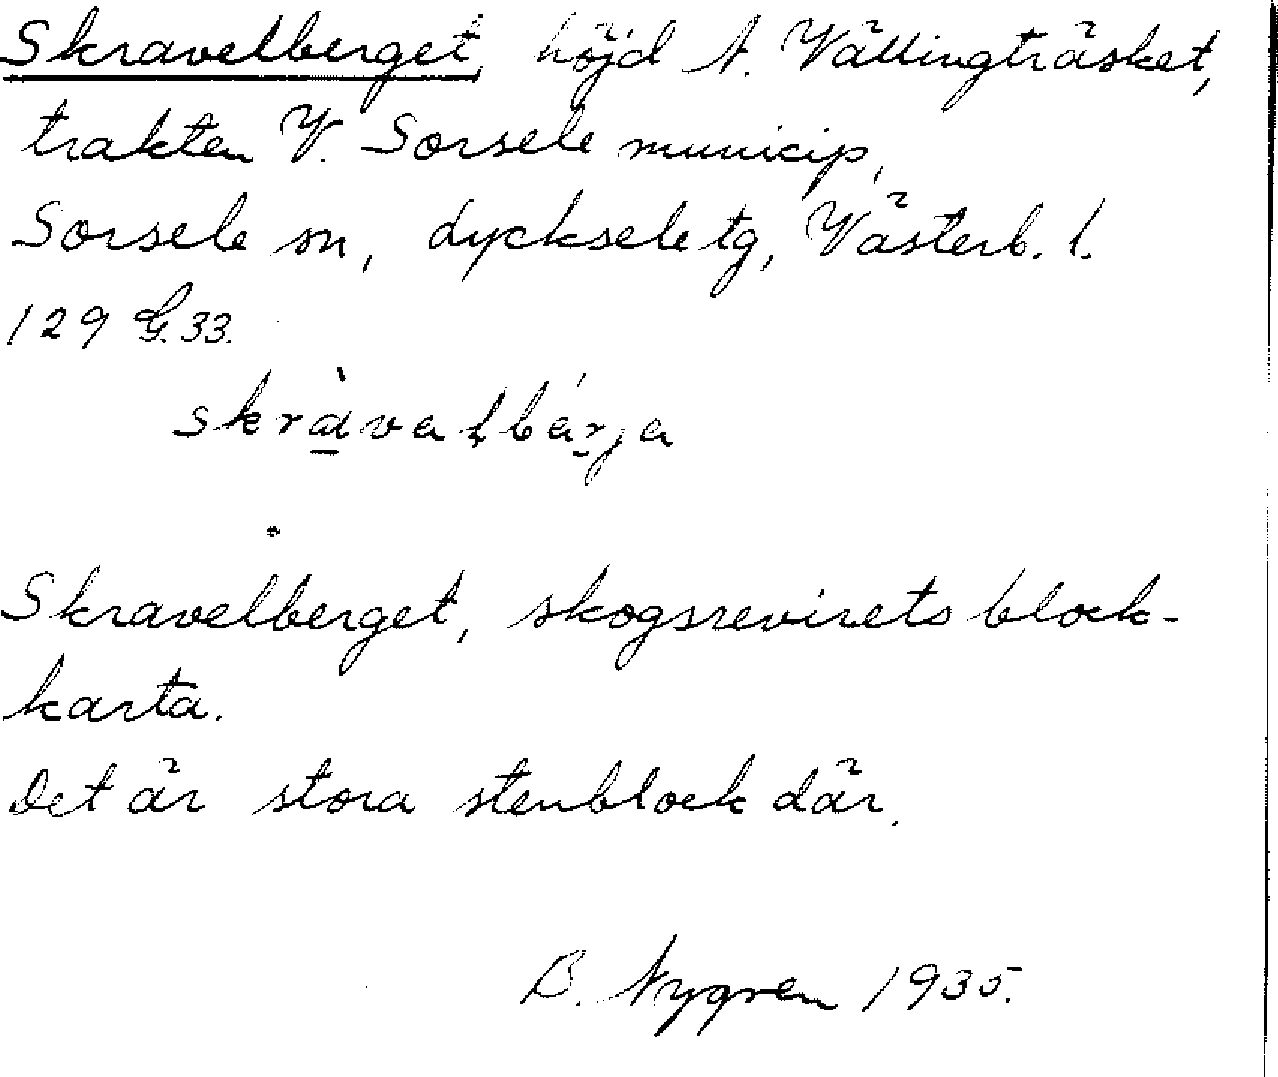 Skravelberget, höjd N. Vällingträsket,
trakten V. Sorsele municip,
Sorsele sn, Lycksele tg, Västerb. l.
129 G. 33.
skràvalbárja
Skravelberget, skogsrevirets block-
karta.
Det är stora stenblock där.
B. Nygren 1935.